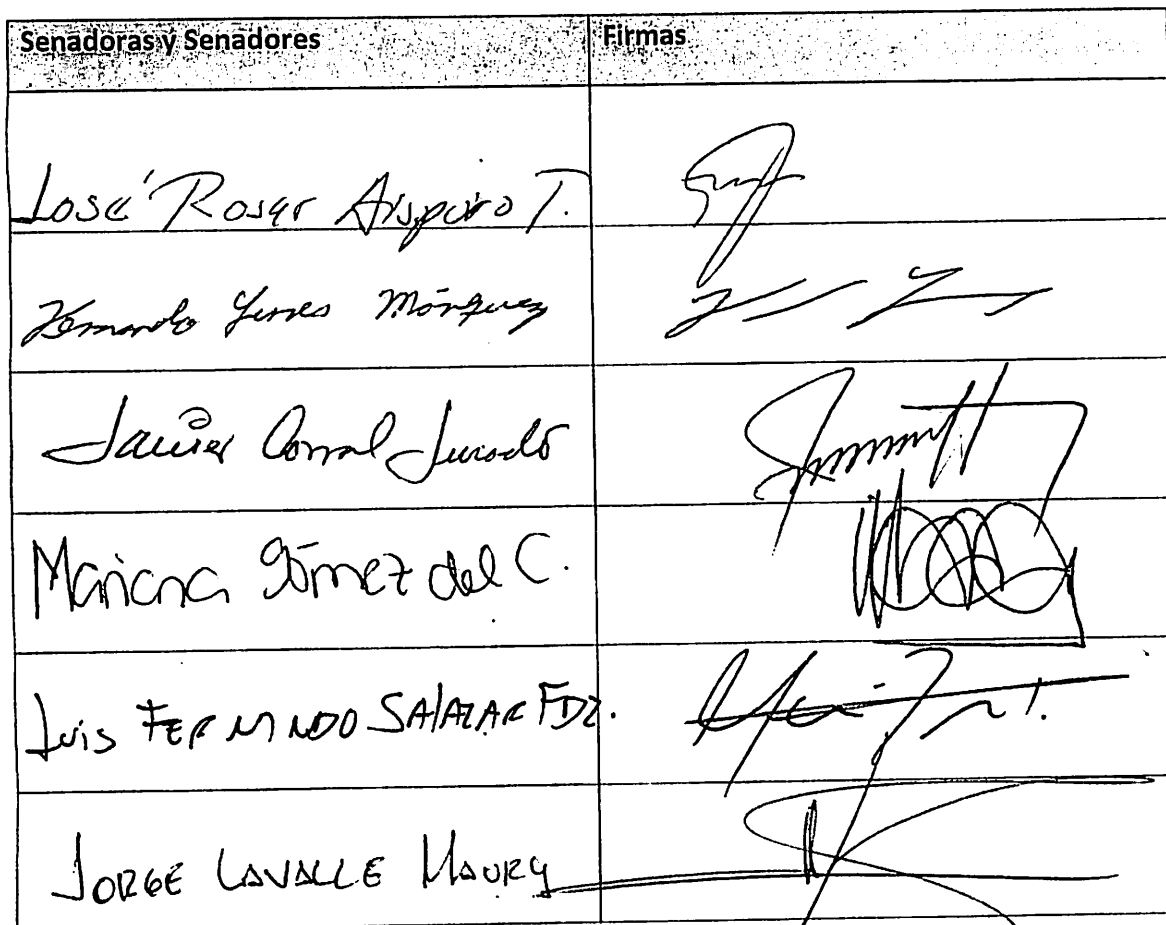 Senadoras y Senadores Firmas
José Rosas Aispuro T.
Fernando Yunes Márquez
Javier Corral Jurado
Mariana Gómez del C.
Luis FERNANDO SALAZAR FDZ.
JORGE LAVALLE MAURY